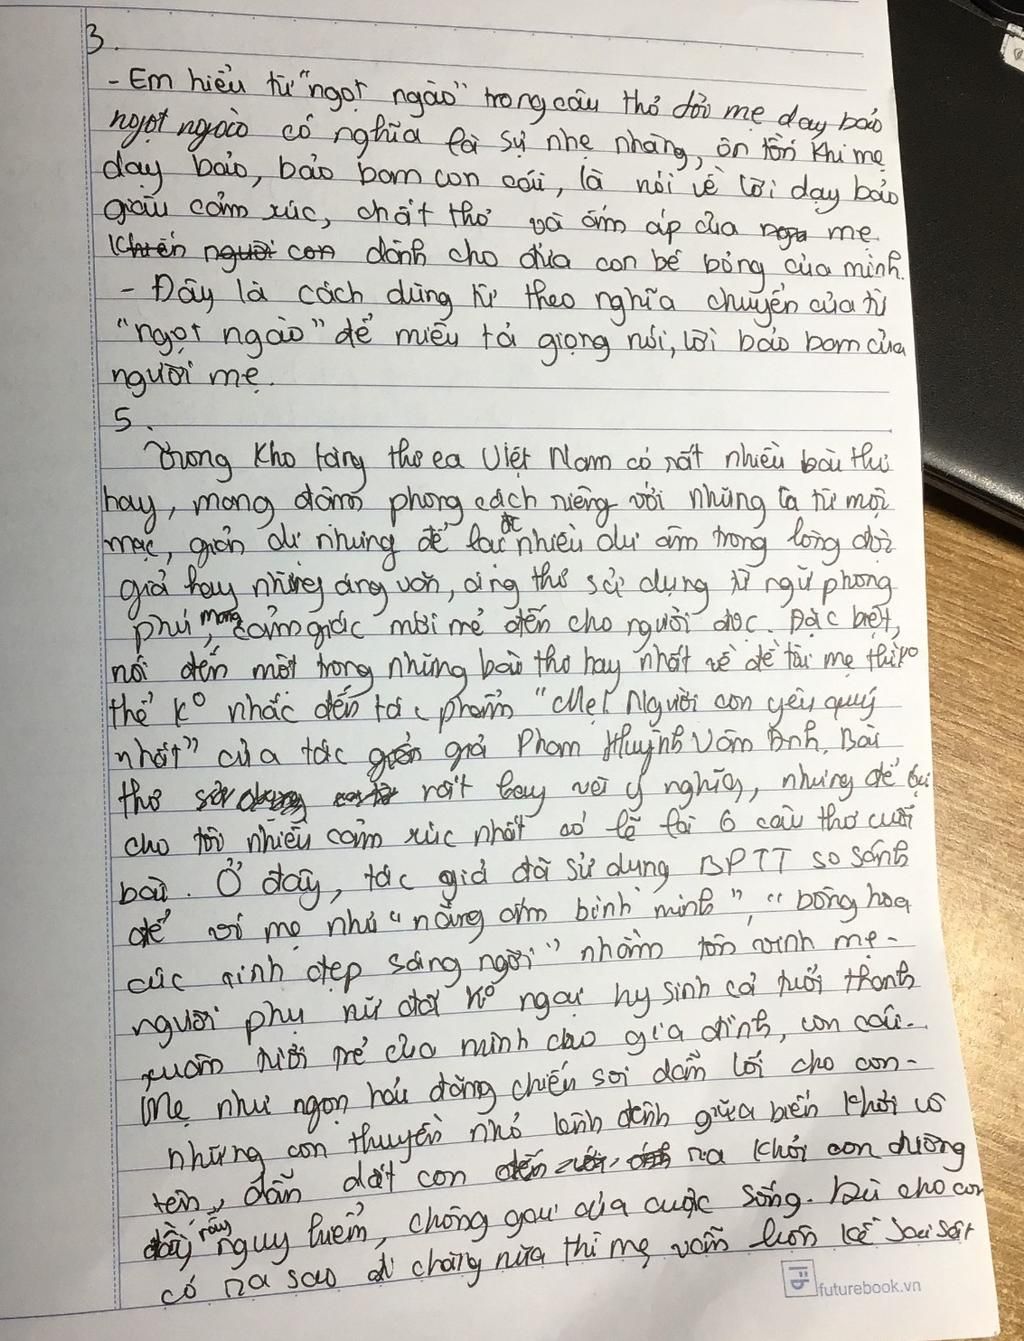 3.
- Em hiểu từ "ngọt ngào" trong câu thơ đời mẹ dạy bảo
ngọt ngào có nghĩa là sự nhẹ nhàng, ôn tồn khi mẹ
dạy bảo, bảo ban con cái, là nói về lời dạy bảo
giàu cảm xúc, chất thơ và ấm áp của mẹ
dành cho đứa con bé bỏng của mình.
- Đây là cách dùng từ theo nghĩa chuyển của từ
"ngọt ngào" để miêu tả giọng nói, lời bảo ban của
người mẹ.
5.
Trong kho tàng thơ ca Việt Nam có rất nhiều bài thơ
hay, mang đậm phong cách riêng với những ca từ mộc
mạc, giản dị nhưng để lại đc nhiều dư âm trong lòng độc
giả hay những áng văn, áng thơ sử dụng từ ngữ phong
phú, mang cảm giác mới mẻ đến cho người đọc. Đặc biệt,
nói đến một trong những bài thơ hay nhất về đề tài mẹ thì ko
thể ko nhắc đến tác phẩm "Mẹ! Người con yêu quý
nhất" của tác giả Phạm Huỳnh Vân Anh. Bài
thơ rất hay về ý nghĩa, nhưng để lại
cho tôi nhiều cảm xúc nhất có lẽ là 6 câu thơ cuối
bài. Ở đây, tác giả đã sử dụng BPTT so sánh
để ví mẹ như "nắng ấm bình minh", "bông hoa
cúc xinh đẹp sáng ngời" nhằm tôn vinh mẹ -
người phụ nữ đã ko ngại hy sinh cả tuổi thanh
xuân tươi trẻ của mình cho gia đình, con cái.
Mẹ như ngọn hải đăng chiếu soi dẫn lối cho con -
những con thuyền nhỏ lênh đênh giữa biển khơi vô
tận, dẫn dắt con ra khỏi con đường
đầy rẫy nguy hiểm, chông gai của cuộc sống. Dù cho con
có ra sao đi chăng nữa thì mẹ vẫn luôn kề sát
futurebook.vn